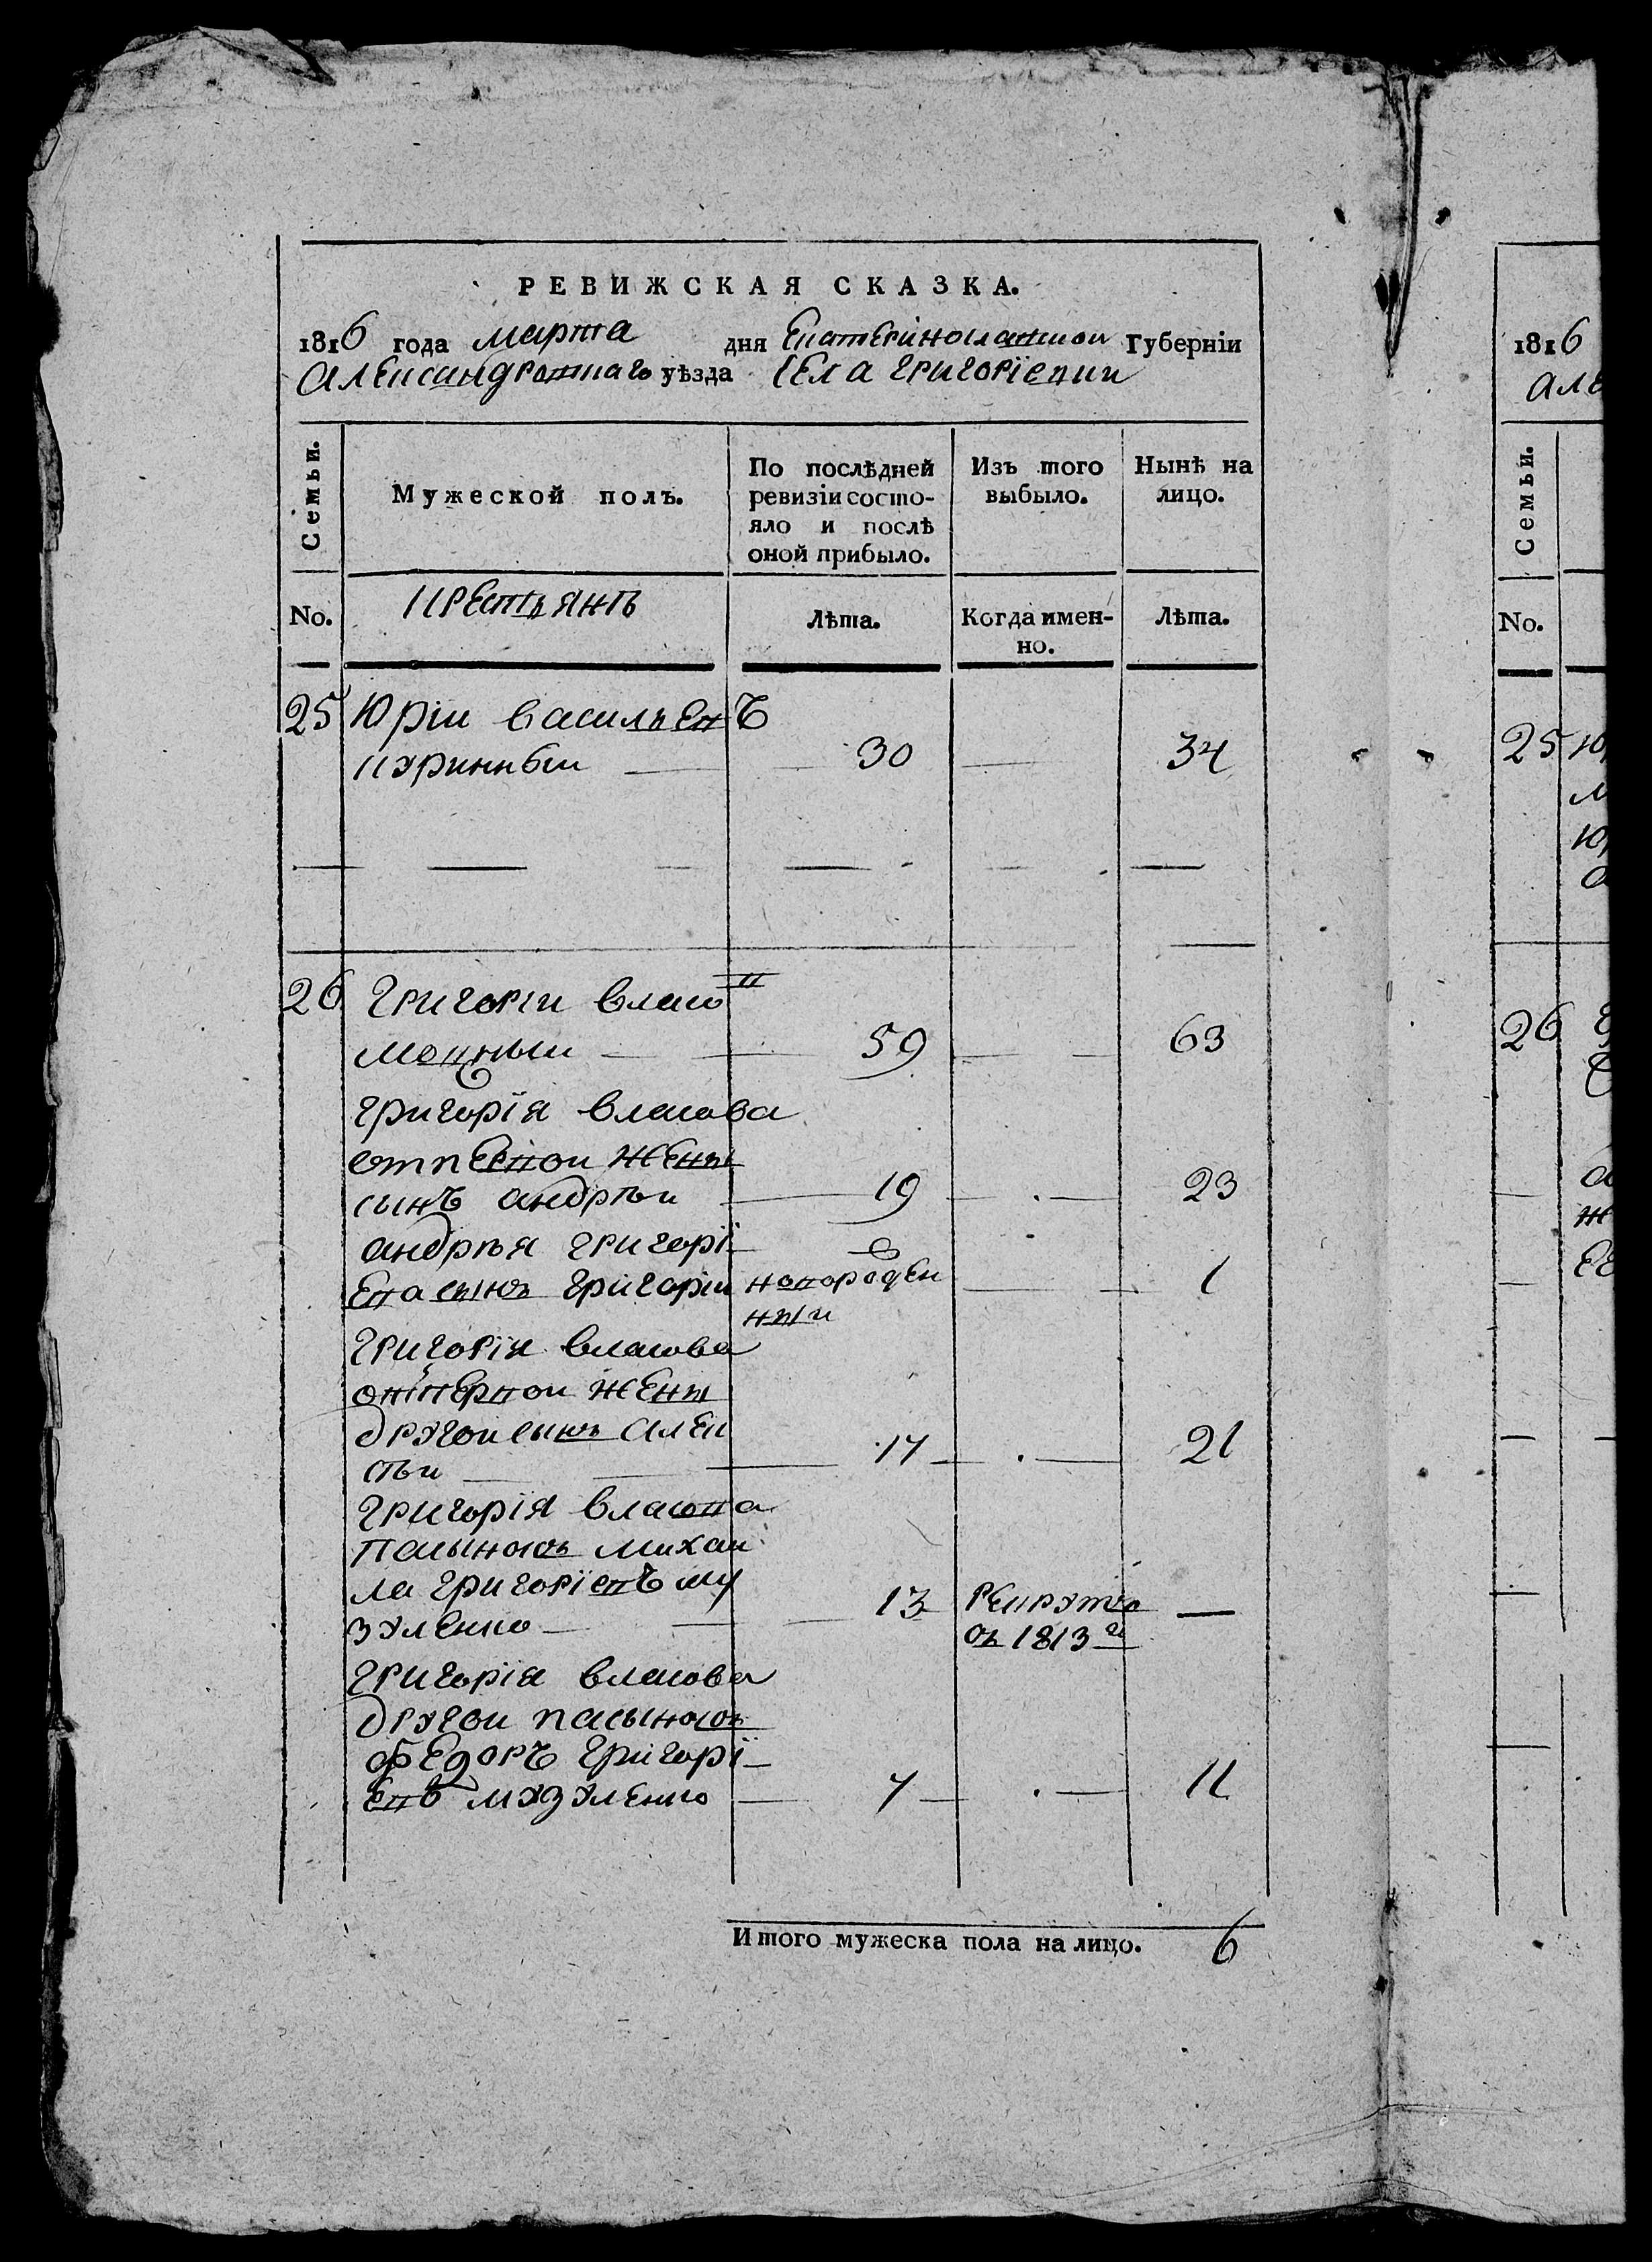 РЕВИЖСКАЯ СКАЗКА.
1816 года марта дня Екатеринославской Губерніи
Александровскаго уѣзда села Григоріевки
Семьи.
Мужеской полъ.
По послѣдней ревизіи состо-
яло и послѣ
оной прибыло.
Изъ того
выбыло.
Нынѣ на
лицо.
No.
крестьянъ
Лѣта.
Когда имен-
но.
Лѣта.
25 Юріи васильевъ
куринныи 30 34
26 Григоріи власо
59 63
григорія власова
от первои жены
сынъ андрѣи 19 23
андрѣя григорі
ева сынъ григоріи новорожден 1
ныи
григорія власова
от первои жены
другои сынъ алек
сѣи 17 21
григорія власова
пасынокъ михаи
ла григоріевъ му
зуленко 13 рекрутъ —
въ 1813 г
григорія власова
другои пасынокъ
федоръ григорі
евъ музуленко 7 11
Итого мужеска пола на лицо. 6
1816
але
Семьи.
No.
25 Ю
26